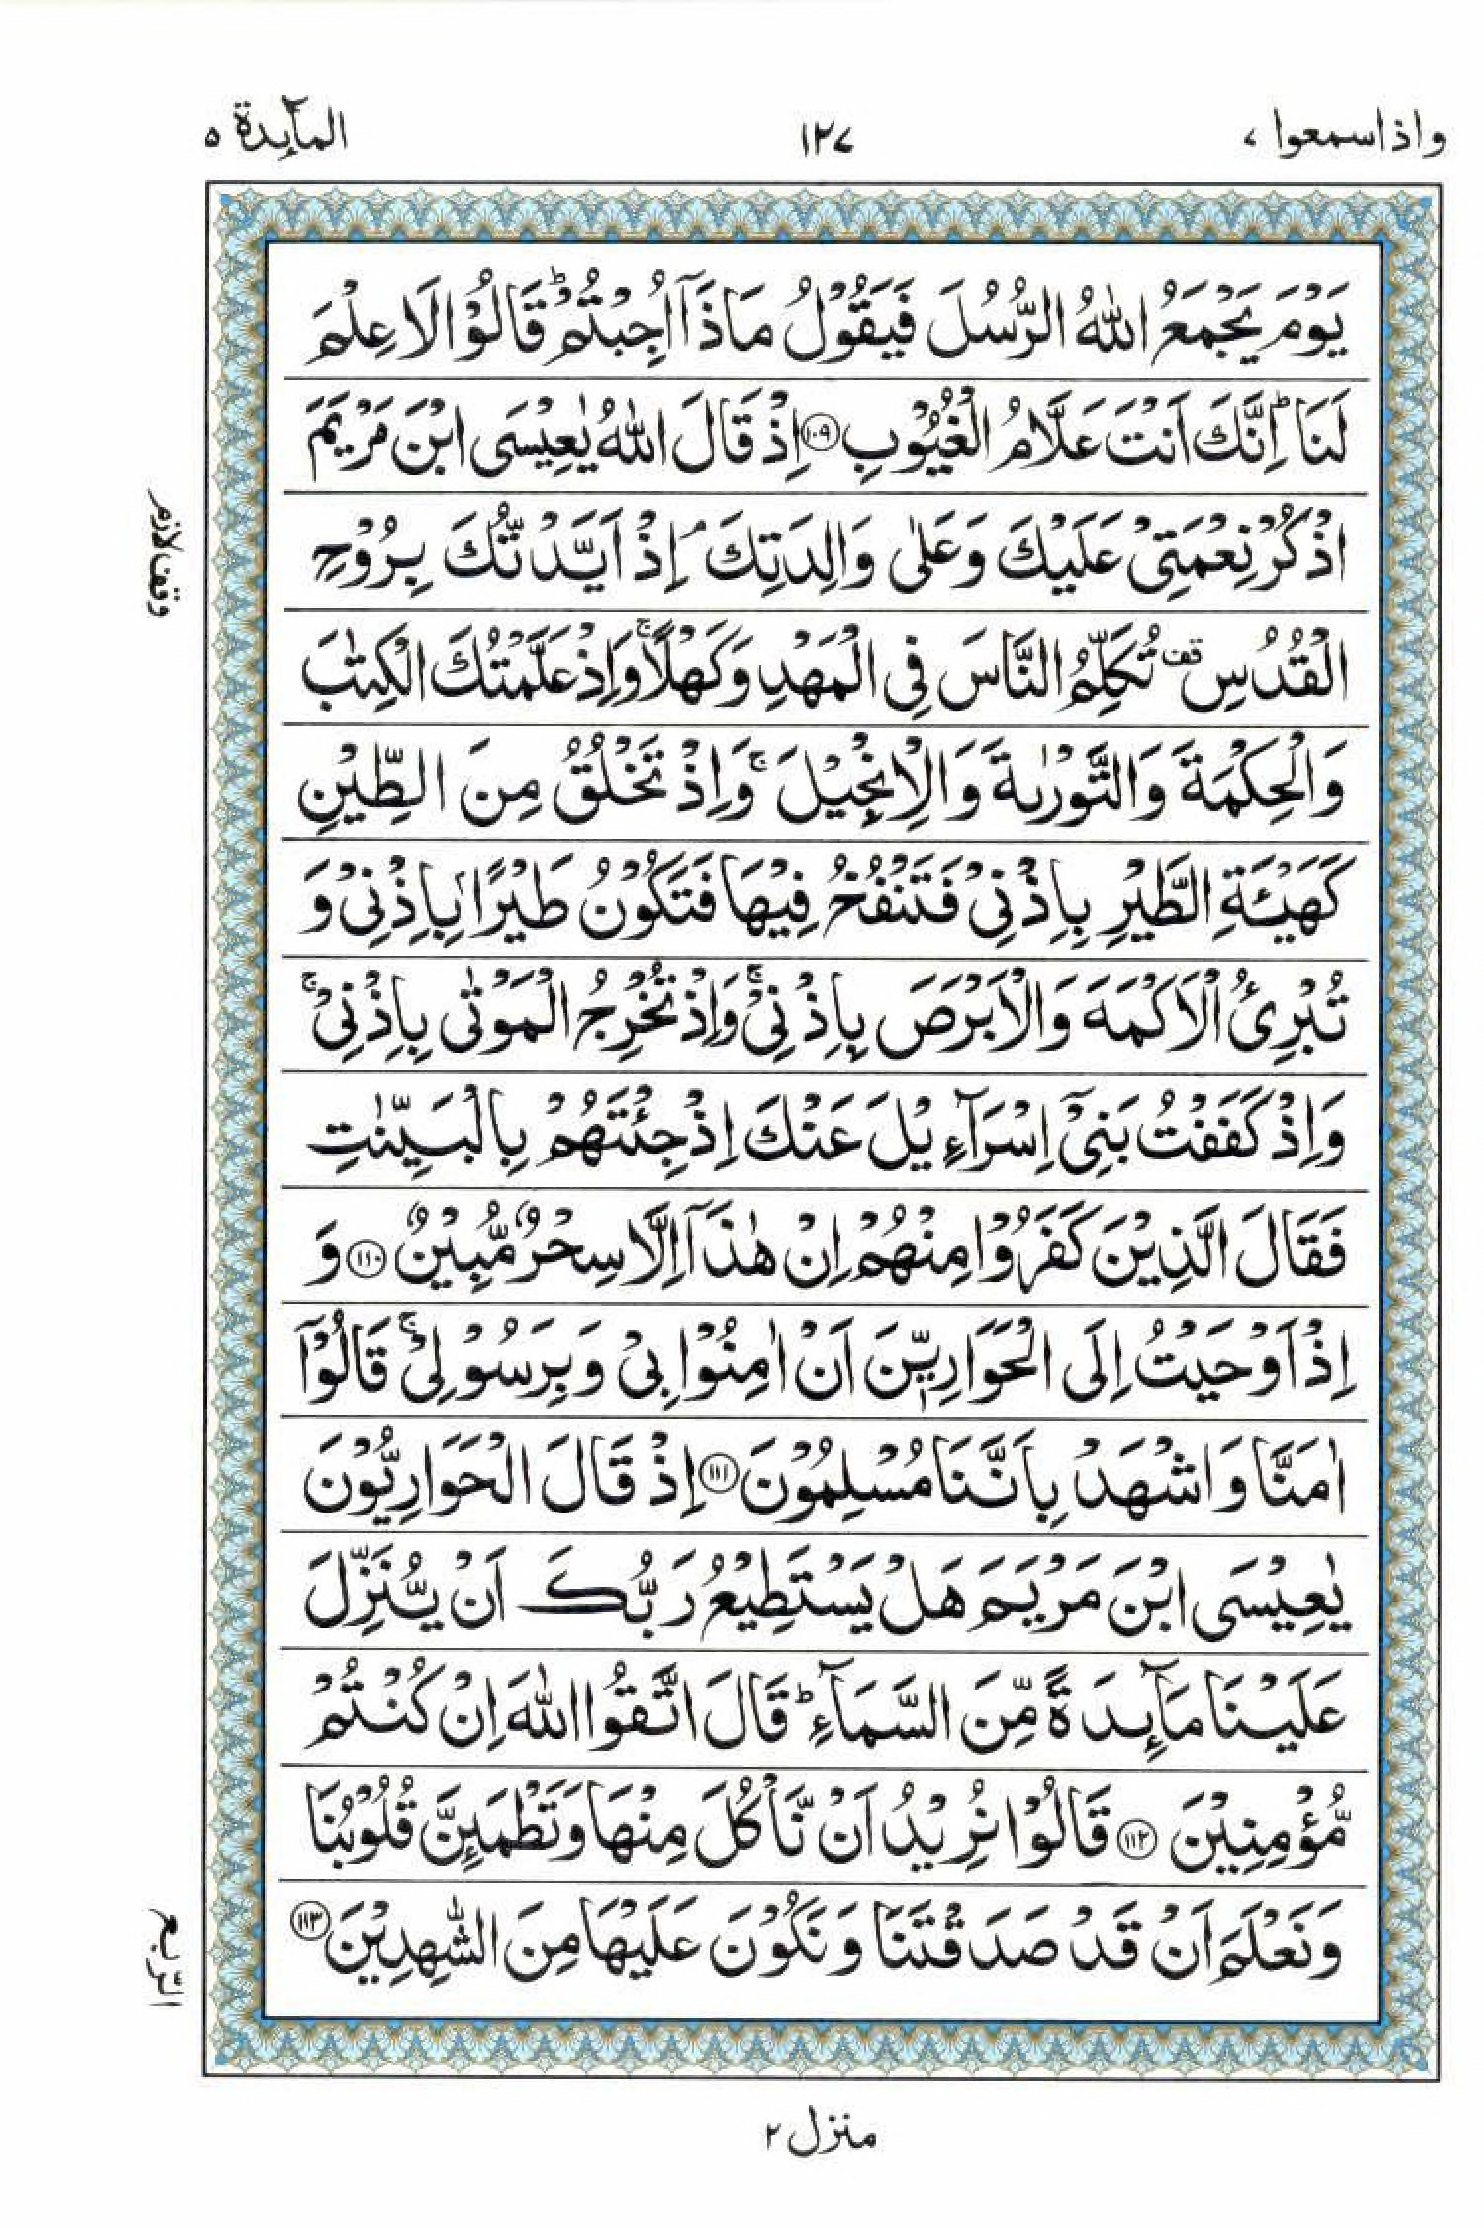 واذاسمعوا ٧
١٢٧
المآىِٕدة ٥
يَوْمَ يَجْمَعُ اللّٰهُ الرُّسُلَ فَيَقُوْلُ مَاذَاۤ اُجِبْتُمْ ؕ قَالُوْا لَا عِلْمَ
لَنَا ؕ اِنَّكَ اَنْتَ عَلَّامُ الْغُيُوْبِ ۝١٠٩ اِذْ قَالَ اللّٰهُ يٰعِيْسَى ابْنَ مَرْيَمَ
اذْكُرْ نِعْمَتِيْ عَلَيْكَ وَعَلٰى وَالِدَتِكَ ۘ اِذْ اَيَّدْتُّكَ بِرُوْحِ
الْقُدُسِ ۫ تُكَلِّمُ النَّاسَ فِي الْمَهْدِ وَكَهْلًا ۚ وَاِذْ عَلَّمْتُكَ الْكِتٰبَ
وَالْحِكْمَةَ وَالتَّوْرٰىةَ وَالْاِنْجِيْلَ ۚ وَاِذْ تَخْلُقُ مِنَ الطِّيْنِ
كَهَيْـَٔةِ الطَّيْرِ بِاِذْنِيْ فَتَنْفُخُ فِيْهَا فَتَكُوْنُ طَيْرًاۢ بِاِذْنِيْ وَ
تُبْرِئُ الْاَكْمَهَ وَالْاَبْرَصَ بِاِذْنِيْ ۚ وَاِذْ تُخْرِجُ الْمَوْتٰى بِاِذْنِيْ ۚ
وَاِذْ كَفَفْتُ بَنِيْۤ اِسْرَآءِيْلَ عَنْكَ اِذْ جِئْتَهُمْ بِالْبَيِّنٰتِ
فَقَالَ الَّذِيْنَ كَفَرُوْا مِنْهُمْ اِنْ هٰذَاۤ اِلَّا سِحْرٌ مُّبِيْنٌ ۝١١٠ وَ
اِذْ اَوْحَيْتُ اِلَى الْحَوَارِيّٖنَ اَنْ اٰمِنُوْا بِيْ وَبِرَسُوْلِيْ ۚ قَالُوْۤا
اٰمَنَّا وَاشْهَدْ بِاَنَّنَا مُسْلِمُوْنَ ۝١١١ اِذْ قَالَ الْحَوَارِيُّوْنَ
يٰعِيْسَى ابْنَ مَرْيَمَ هَلْ يَسْتَطِيْعُ رَبُّكَ اَنْ يُّنَزِّلَ
عَلَيْنَا مَآىِٕدَةً مِّنَ السَّمَآءِ ؕ قَالَ اتَّقُوا اللّٰهَ اِنْ كُنْتُمْ
مُّؤْمِنِيْنَ ۝١١٢ قَالُوْا نُرِيْدُ اَنْ نَّاْكُلَ مِنْهَا وَتَطْمَىِٕنَّ قُلُوْبُنَا
وَنَعْلَمَ اَنْ قَدْ صَدَقْتَنَا وَنَكُوْنَ عَلَيْهَا مِنَ الشّٰهِدِيْنَ ۝١١٣
وقف لازم
الرّبع
منزل ٢